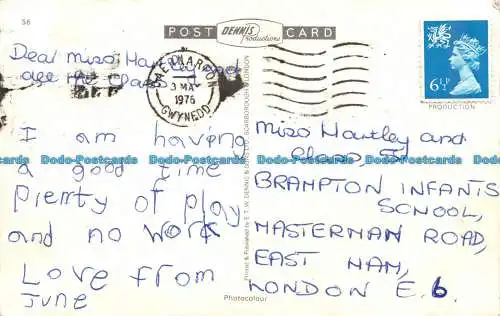 56
POST DENNIS Productions CARD
Dear Miss Hartley and
all the Class
CAERNARFON
3 MAY
1976
GWYNEDD
6½P
PRODUCTION
I am having
a good time
Plenty of play
and no work
Love from
June
Miss Hartley and
Class 5
BRAMPTON INFANTS
SCHOOL,
MASTERMAN ROAD,
EAST HAM,
LONDON E.6.
Printed & Published by E. T. W. DENNIS & SONS LTD. SCARBOROUGH & LONDON
Photocolour
Dodo-Postcards Dodo-Postcards Dodo-Postcards Dodo-Postcards